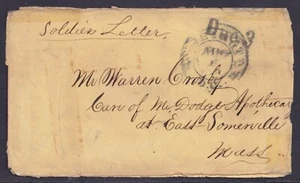 Soldier Letter,
Due 3
AUG
Mr Warren Crosby
Care of Mr Dodge Apothecary
at East Somerville
Mass